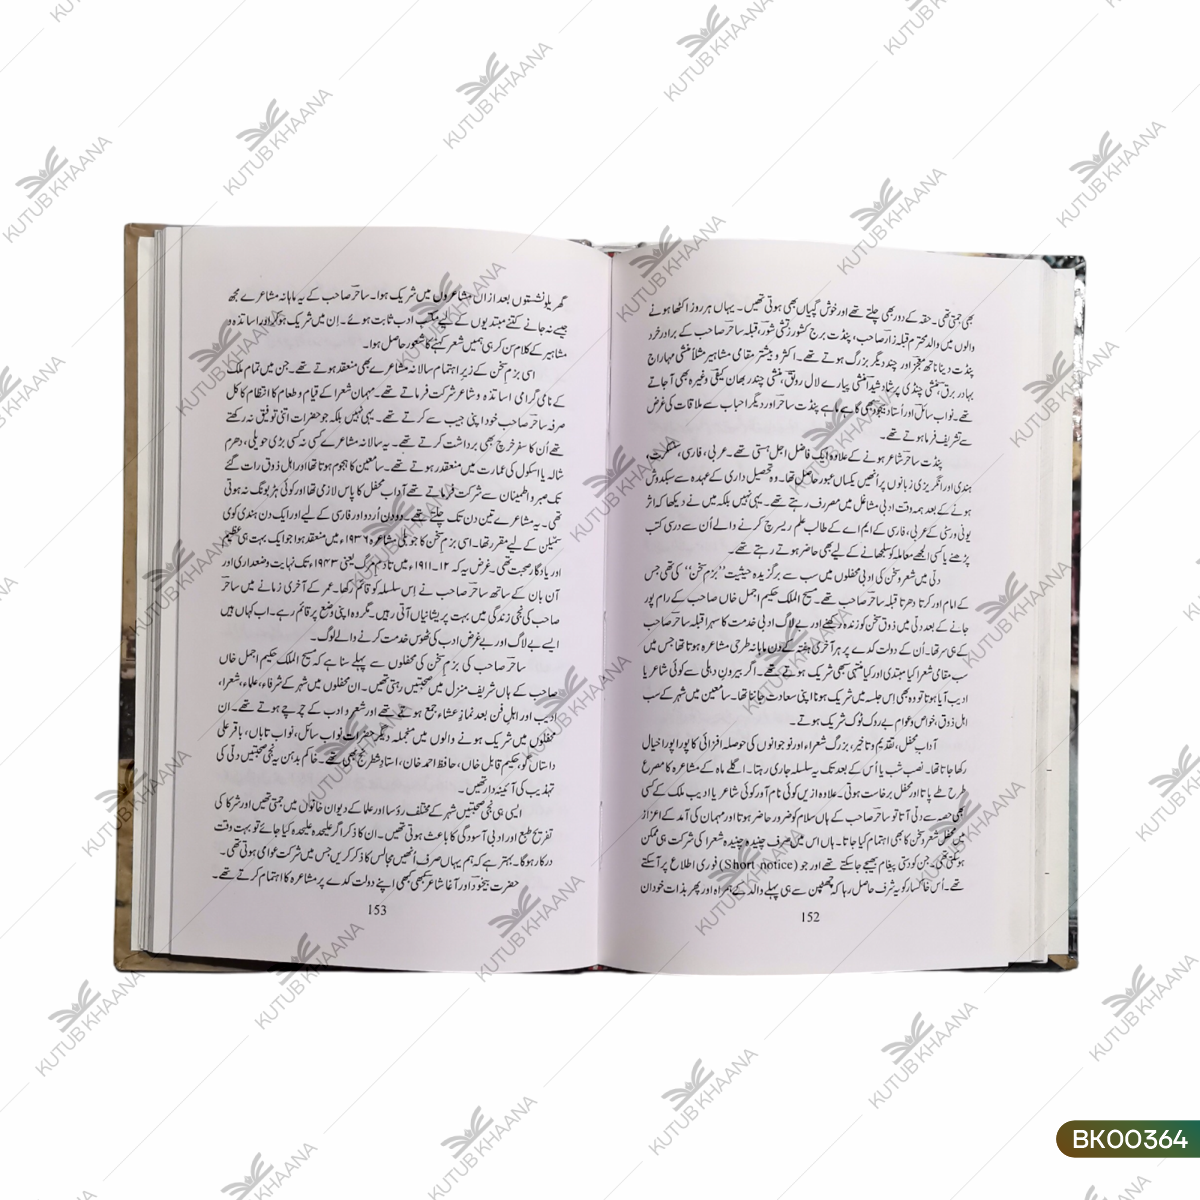 بھی جمتی تھی۔ حقہ کے دور بھی چلتے تھے اور خوش گپیاں بھی ہوتی تھیں۔ یہاں ہر روز اکٹھا ہونے
والوں میں والد محترم قبلہ زار صاحب، پنڈت برج کشور زتشی شور، قبلہ ساحر صاحب کے برادرِ خرد
پنڈت دینا ناتھ معجز اور چند دیگر بزرگ ہوتے تھے۔ اکثر و بیشتر مقامی مشاہیر مثلاً منشی مہاراج
بہادر برق، منشی چنڈی پرشاد شیدا، منشی پیارے لال رونق، منشی چندر بھان کیفی وغیرہ بھی آجاتے
تھے۔ نواب سائل اور اُستاد بیخود بھی گاہے ماہے پنڈت ساحر اور دیگر احباب سے ملاقات کی غرض
سے تشریف فرما ہوتے تھے۔
پنڈت ساحر شاعر ہونے کے علاوہ ایک فاضل اجل ہستی تھے۔ عربی، فارسی، سنسکرت،
ہندی اور انگریزی زبانوں پر اُنھیں یکساں عبور حاصل تھا۔ وہ تحصیل داری کے عہدہ سے سبکدوش
ہونے کے بعد ہمہ وقت ادبی مشاغل میں مصروف رہتے تھے۔ یہی نہیں بلکہ میں نے دیکھا کہ اکثر
یونی ورسٹی کے عربی، فارسی کے ایم اے کے طالب علم ریسرچ کرنے والے اُن سے درسی کتب
پڑھنے یا کسی الجھے معاملہ کو سلجھانے کے لیے بھی حاضر ہوتے رہتے تھے۔
دلّی میں شعر و سخن کی ادبی محفلوں میں سب سے برگزیدہ حیثیت ''بزم سخن'' کی تھی جس
کے امام اور کرتا دھرتا قبلہ ساحر صاحب تھے۔ مسیح الملک حکیم اجمل خاں صاحب کے رام پور
جانے کے بعد دلّی میں ذوق سخن کو زندہ رکھنے اور بے لاگ ادبی خدمت کا سہرا قبلہ ساحر صاحب
کے ہی سر تھا۔ اُن کے دولت کدے پر ہر آخری ہفتہ کے دن ماہانہ طرحی مشاعرہ ہوتا تھا جس میں
سب مقامی شعرا کیا مبتدی اور کیا منتہی سبھی شریک ہوتے تھے۔ اگر بیرونِ دہلی سے کوئی شاعر یا
ادیب آیا ہوتا تو وہ بھی اس جلسہ میں شریک ہونا اپنی سعادت جانتا تھا۔ سامعین میں شہر کے سب
اہل ذوق، خواص و عوام بے روک ٹوک شریک ہوتے۔
آداب محفل، تقدیم و تاخیر، بزرگ شعراء اور نوجوانوں کی حوصلہ افزائی کا پورا پورا خیال
رکھا جاتا تھا۔ نصف شب یا اُس کے بعد تک یہ سلسلہ جاری رہتا۔ اگلے ماہ کے مشاعرہ کا مصرع
طرح طے پاتا اور محفل برخاست ہوتی۔ علاوہ ازیں کوئی نام آور کوئی شاعر یا ادیب ملک کے کسی
بھی حصہ سے دلّی آتا تو ساحر صاحب کے ہاں سلام کو ضرور حاضر ہوتا اور مہمان کی آمد کے اعزاز
میں محفل شعر و سخن کا بھی اہتمام کیا جاتا۔ ہاں اس میں صرف چنیدہ چنیدہ شعرا کی شرکت ہی ممکن
ہوسکتی تھی۔ جن کو دستی پیغام بھیجے جاسکتے تھے اور جو (Short notice) فوری اطلاع پر آسکتے
تھے۔ اُس خاکسار کو یہ شرف حاصل رہا کہ بچپن سے ہی پہلے والد کے ہمراہ اور پھر بذات خود ان
152
گھریلو نشستوں بعد ازاں مشاعروں میں شریک ہوا۔ ساحر صاحب کے یہ ماہانہ مشاعرے مجھ
جیسے نہ جانے کتنے مبتدیوں کے لیے مکتب ادب ثابت ہوئے۔ اِن میں شریک ہو کر اور اساتذہ و
مشاہیر کے کلام سن کر ہی ہمیں شعر کہنے کا شعور حاصل ہوا۔
اسی بزم سخن کے زیر اہتمام سالانہ مشاعرے بھی منعقد ہوتے تھے۔ جن میں تمام ملک
کے نامی گرامی اساتذہ و شاعر شرکت فرماتے تھے۔ مہمان شعرا کے قیام و طعام کا انتظام کا کل
صرفہ ساحر صاحب خود اپنی جیب سے کرتے تھے۔ یہی نہیں بلکہ جو حضرات اتنی توفیق نہ رکھتے
تھے اُن کا سفر خرچ بھی برداشت کرتے تھے۔ یہ سالانہ مشاعرے کسی نہ کسی بڑی حویلی، دھرم
شالہ یا اسکول کی عمارت میں منعقد ہوتے تھے۔ سامعین کا ہجوم ہوتا تھا اور اہل ذوق رات گئے
تک صبر و اطمینان سے شرکت فرماتے تھے آداب محفل کا پاس لازمی تھا اور کوئی ہڑبونگ نہ ہوتی
تھی۔ یہ مشاعرے تین دن تک چلتے تھے۔ دو دن اُردو اور فارسی کے لیے اور ایک دن ہندی کوی
سمیلن کے لیے مقرر تھا۔ اسی بزم سخن کا جوبلی مشاعرہ ۱۹۳۶ء میں منعقد ہوا جو ایک بہت ہی عظیم
اور یادگار صحبت تھی۔ غرض یہ کہ ۱۲۔۱۹۱۱ء میں تادمِ مرگ یعنی ۱۹۴۳ء تک نہایت وضعداری اور
آن بان کے ساتھ ساحر صاحب نے اِس سلسلہ کو قائم رکھا۔ عمر کے آخری زمانے میں ساحر
صاحب کی نجی زندگی میں بہت پریشانیاں آتی رہیں۔ مگر وہ اپنی وضع پر قائم رہے۔ اب کہاں ہیں
ایسے بے لاگ اور بے غرض ادب کی ٹھوس خدمت کرنے والے لوگ۔
ساحر صاحب کی بزم سخن کی محفلوں سے پہلے سنا ہے کہ مسیح الملک حکیم اجمل خاں
صاحب کے ہاں شریف منزل میں صحبتیں رہتی تھیں۔ ان محفلوں میں شہر کے شرفاء، علماء، شعرا،
ادیب اور اہلِ فن بعد نماز عشاء جمع ہوتے تھے اور شعر و ادب کے چرچے ہوتے تھے۔ ان
محفلوں میں شریک ہونے والوں میں منجملہ دیگر حضرات نواب سائل، نواب تاباں، باقر علی
داستاں گو، حکیم قابل خاں، حافظ احمد خان، استاد شطرنج بھی تھے۔ خاکم بدہن یہ نجی صحبتیں دلّی کی
تہذیب کی آئینہ دار تھیں۔
ایسی ہی نجی صحبتیں شہر کے مختلف رؤسا اور علما کے دیوان خانوں میں جمتی تھیں اور شرکا کی
تفریح طبع اور ادبی آسودگی کا باعث ہوتی تھیں۔ ان کا ذکر اگر علیحدہ علیحدہ کیا جائے تو بہت وقت
درکار ہوگا۔ بہتر ہے کہ ہم یہاں صرف اُنھیں مجالس کا ذکر کریں جس میں شرکت عوامی ہوتی تھی۔
حضرت بیخود اور آغا شاعر بھی کبھی کبھی اپنے دولت کدے پر مشاعرہ کا اہتمام کرتے تھے۔
153
KUTUB KHAANA
BK00364